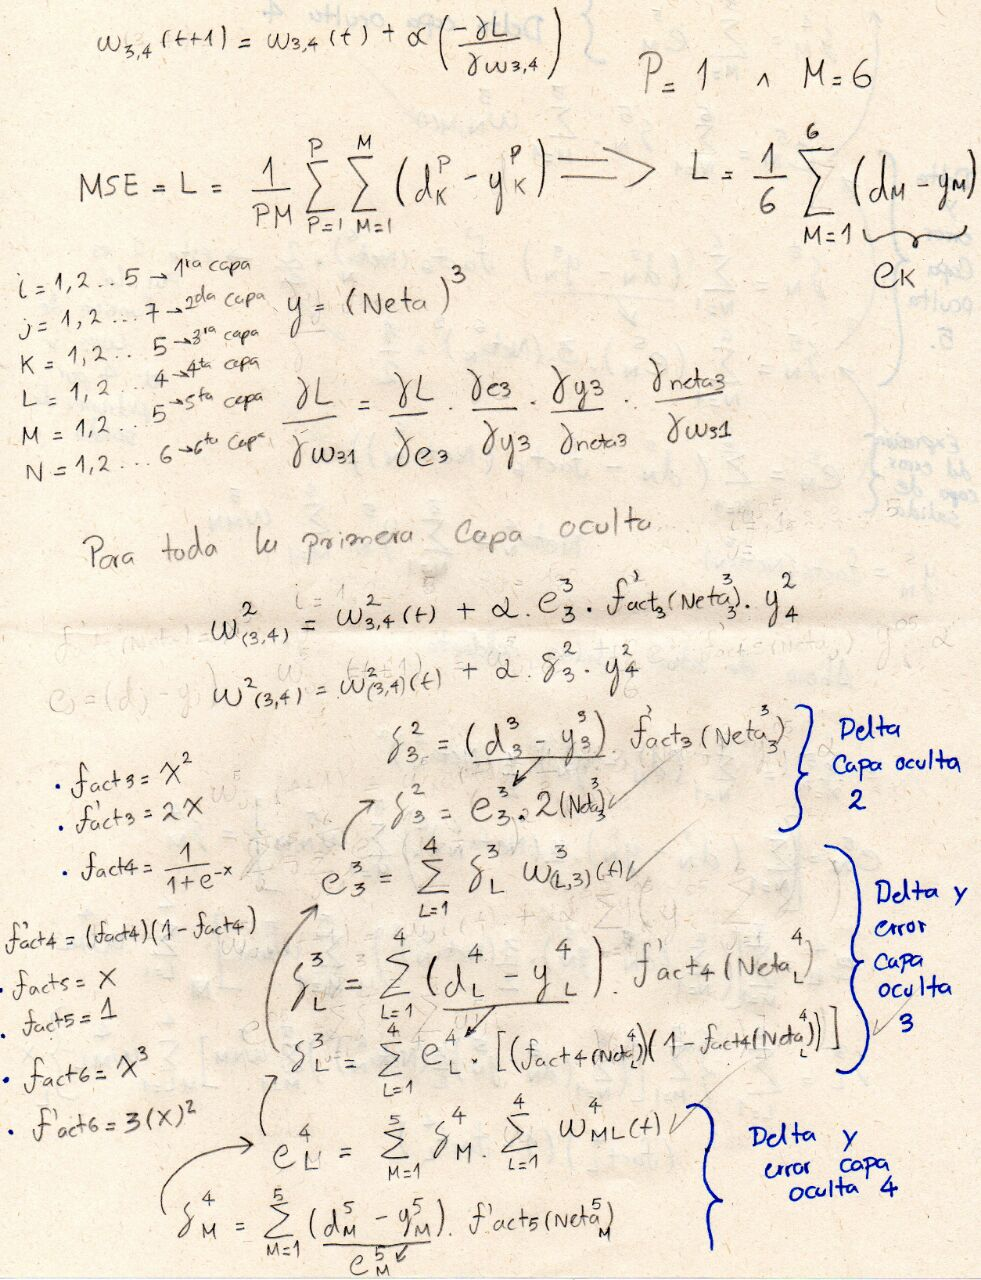 w₃,₄(t+1) = w₃,₄(t) + α(-γL / γw₃,₄)
P = 1 ∧ M = 6
MSE = L = 1/PM Σ_{P=1}^{P} Σ_{M=1}^{M} (d_K^P - y_K^P) ⟹ L = 1/6 Σ_{M=1}^{6} (d_M - y_M)
e_K
i = 1,2 ... 5 → 1ra capa
j = 1,2 ... 7 → 2da capa
K = 1,2 ... 5 → 3ra capa
L = 1,2 ... 4 → 4ta capa
M = 1,2 ... 5 → 5ta capa
N = 1,2 ... 6 → 6ta capa
y = (Neta)³
γL/γw₃₁ = γL/γe₃ · γe₃/γy₃ · γy₃/γneta₃ · γneta₃/γw₃₁
Para toda la primera Capa oculta
w²(3,4) = w²₃,₄(t) + α . e₃³ · f'act₃(Neta₃³) · y₄²
w²(3,4) = w²(3,4)(t) + α . δ₃² · y₄²
δ₃² = (d₃³ - y₃³) . f'act₃(Neta₃³)
δ₃² = e₃³ . 2(Neta₃³)
Delta
Capa oculta
2
· fact3 = X²
· f'act3 = 2X
· fact4 = 1/(1+e^-x)
f'act4 = (fact4)(1 - fact4)
· fact5 = X
· f'act5 = 1
· fact6 = X³
· f'act6 = 3(X)²
e₃³ = Σ_{L=1}^{4} δ_L³ w³(L,3)(t)
δ_L³ = Σ_{L=1}^{4} (d_L⁴ - y_L⁴) . f'act₄(Neta_L⁴)
δ_L³ = Σ_{L=1}^{4} e_L⁴ · [(fact4(Neta_L⁴)(1 - fact4(Neta_L⁴))]
Delta y
error
capa
oculta
3
e_M⁴ = Σ_{M=1}^{5} δ_M⁴ . Σ_{L=1}^{4} w_ML⁴(t)
δ_M⁴ = Σ_{M=1}^{5} (d_M⁵ - y_M⁵) . f'act5(Neta_M⁵)
e_M⁵
Delta y
error capa
oculta 4